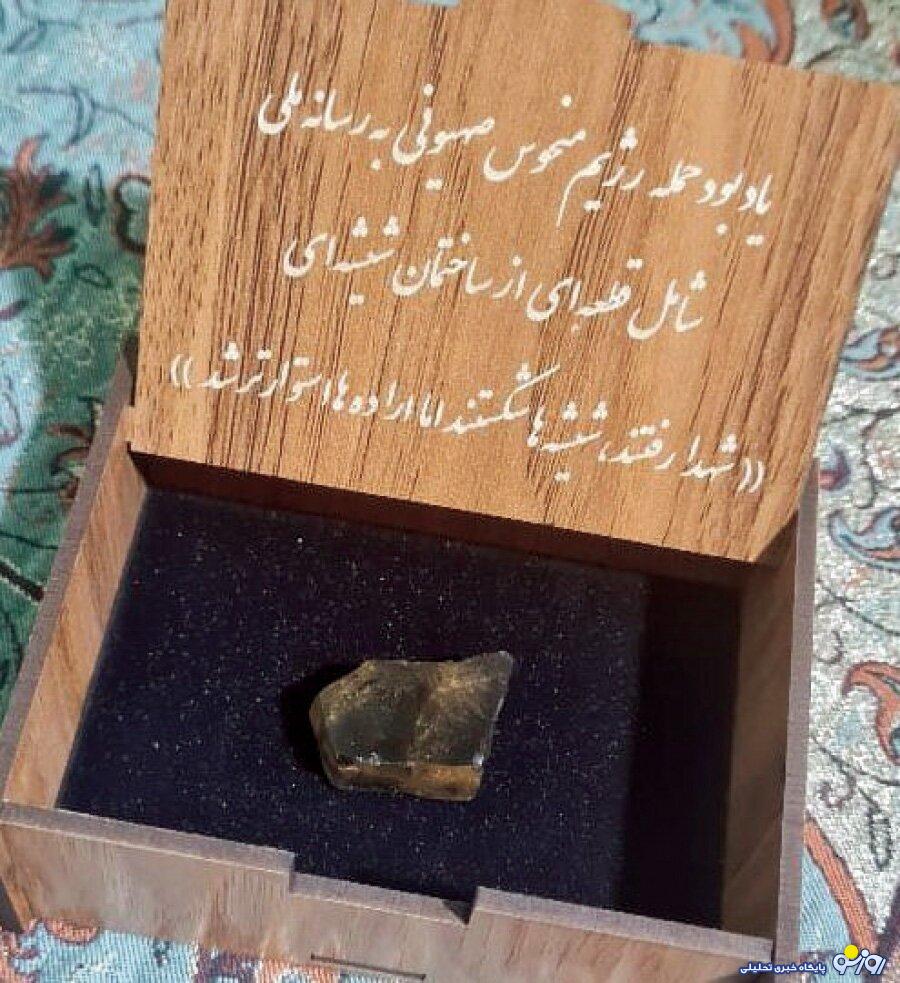 یادبود حمله رژیم منحوس صهیونی به رسانه ملی
شامل قطعه‌ای از ساختمان شیشه‌ای
((شهدا رفتند، شیشه‌ها شکستند اما اراده‌ها استوارتر شد))
روزنو
پایگاه خبری تحلیلی